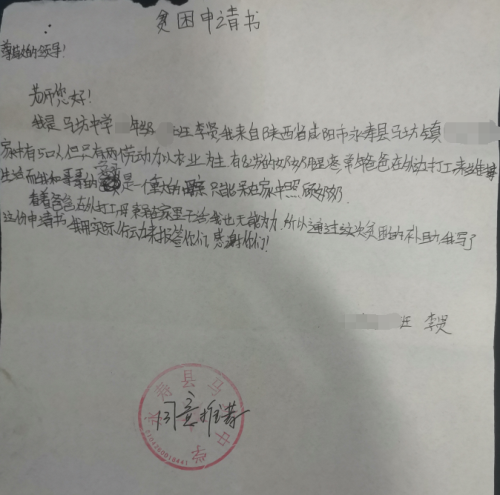 贫困申请书
尊敬的领导!
老师您好!
我是马坊中学 年级 班李贤我来自陕西省咸阳市永寿县马坊镇
家中有5口人但只有两个劳动力以农业为主 有 岁的奶奶 爸爸在外边打工来维持
生活 是一个重大的 只能呆在家中照顾奶奶
看着爸爸在外打工 呆在家里干活我也无能为力.所以通过这次贫困的补助,我写了
这份申请书 我用实际行动来报答你们 感谢你们!
班 李贤
同意推荐
永寿县马坊中学